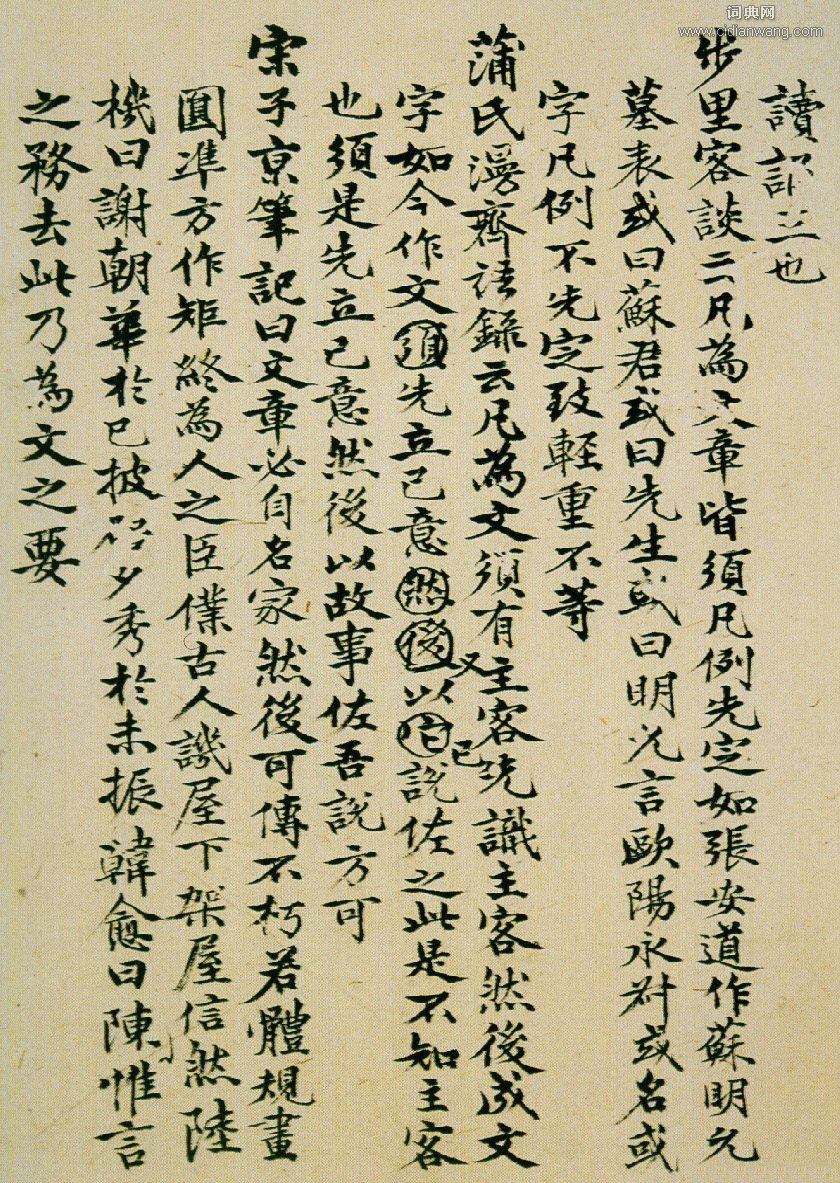 词典网
www.cidianwang.com
讀認三也
步里客談云凡為文章皆須凡例先定如張安道作蘇明允
墓表或曰蘇君或曰先生或曰明允言歐陽永叔或名或
字凡例不先定致輕重不等
蒲氏漫齊語錄云凡為文須有主客先識主客然後成文
字如今作文須先立己意然後又以己說佐之此是不知主客
也須是先立己意然後以故事佐吾說方可
宋子京筆記曰文章必自名家然後可傳不朽若體規畫
圓準方作矩終為人之臣僕古人譏屋下架屋信然陸
機曰謝朝華於已披啓夕秀於未振韓愈曰陳惟言
之務去此乃為文之要